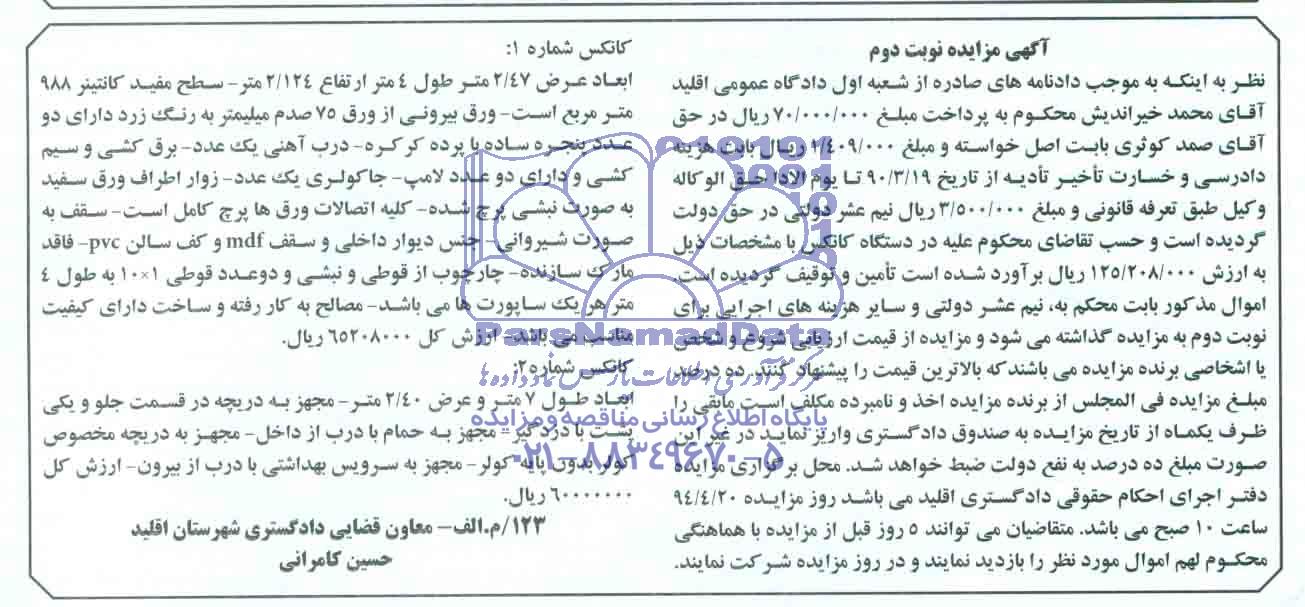 آگهی مزایده نوبت دوم
نظر به اینکه به موجب دادنامه های صادره از شعبه اول دادگاه عمومی اقلید
آقای محمد خیراندیش محکوم به پرداخت مبلغ ۷۰/۰۰۰/۰۰۰ ریال در حق
آقای صمد کوثری بابت اصل خواسته و مبلغ ۱/۴۰۹/۰۰۰ ریال بابت هزینه
دادرسی و خسارت تأخیر تأدیه از تاریخ ۹۰/۳/۱۹ تا یوم الادا حق الوکاله
وکیل طبق تعرفه قانونی و مبلغ ۳/۵۰۰/۰۰۰ ریال نیم عشر دولتی در حق دولت
گردیده است و حسب تقاضای محکوم علیه در دستگاه کانکس با مشخصات ذیل
به ارزش ۱۲۵/۲۰۸/۰۰۰ ریال برآورد شده است تأمین و توقیف گردیده است.
اموال مذکور بابت محکم به، نیم عشر دولتی و سایر هزینه های اجرایی برای
نوبت دوم به مزایده گذاشته می شود و مزایده از قیمت ارزیابی شروع و شخص
یا اشخاصی برنده مزایده می باشند که بالاترین قیمت را پیشنهاد کنند. ده درصد
مبلغ مزایده فی المجلس از برنده مزایده اخذ و نامبرده مکلف است مابقی را
ظرف یکماه از تاریخ مزایده به صندوق دادگستری واریز نماید در غیر این
صورت مبلغ ده درصد به نفع دولت ضبط خواهد شد. محل برگزاری مزایده
دفتر اجرای احکام حقوقی دادگستری اقلید می باشد روز مزایده ۹۴/۴/۲۰
ساعت ۱۰ صبح می باشد. متقاضیان می توانند ۵ روز قبل از مزایده با هماهنگی
محکوم لهم اموال مورد نظر را بازدید نمایند و در روز مزایده شرکت نمایند.
کانکس شماره ۱:
ابعاد عرض ۲/۴۷ متر طول ۴ متر ارتفاع ۲/۱۲۴ متر- سطح مفید کانتینر ۹۸۸
متر مربع است- ورق بیرونی از ورق ۷۵ صدم میلیمتر به رنگ زرد دارای دو
عدد پنجره ساده با پرده کرکره- درب آهنی یک عدد- برق کشی و سیم
کشی و دارای دو عدد لامپ- جاکولری یک عدد- زوار اطراف ورق سفید
به صورت نبشی پرچ شده- کلیه اتصالات ورق ها پرچ کامل است- سقف به
صورت شیروانی- جنس دیوار داخلی و سقف mdf و کف سالن pvc- فاقد
مارک سازنده- چارچوب از قوطی و نبشی و دوعدد قوطی ۱×۱۰ به طول ۴
متر هر یک ساپورت ها می باشد- مصالح به کار رفته و ساخت دارای کیفیت
مناسب می باشد- ارزش کل ۶۵۲۰۸۰۰۰ ریال.
کانکس شماره۲:
ابعاد طول ۷ متر و عرض ۲/۴۰ متر- مجهز به دریچه در قسمت جلو و یکی
پشت با درد گیر- مجهز به حمام با درب از داخل- مجهز به دریچه مخصوص
کولر بدون پایه کولر- مجهز به سرویس بهداشتی با درب از بیرون- ارزش کل
۶۰۰۰۰۰۰۰ ریال.
۱۲۳/م.الف- معاون قضایی دادگستری شهرستان اقلید
حسین کامرانی
ParsNamadData
مرکز فرآوری اطلاعات پارس نماد داده ها
پایگاه اطلاع رسانی مناقصه و مزایده
۰۲۱-۸۸۳۴۹۶۷۰-۵